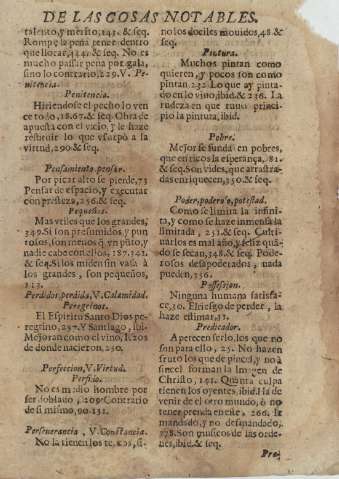 DE LAS COSAS NOTABLES.
talento, y merito, 142. & seq.
Rompe la pena pener dentro
que llorar, 444. & seq. No es
mucho passar pena por gala,
sino lo contrario, 229. V. Pe-
nitencia.
Penitencia.
Hiriendose el pecho lo ven
ce todo, 18. 67. & seq. Obra de
apuesta con el vicio, y le haze
restituir lo que vsurpò a la
virtud, 290 & seq.
Pensamiento, pensar.
Por picar alto se pierde, 73
Pensar de espacio, y executar
con presteza, 256. & seq.
Pequeños.
Mas vtiles que los grandes,
349. Si son presumidos, y pun
tosos, son menos q̃ vn puto, y
nadie cabe con ellos, 187. 142.
& seq. Si los miden sin vasa à
los grandes, son pequeños,
113.
Perdidos, perdida, V. Calamidad.
Peregrinos.
El Espiritu Santo Dios pe-
regrino, 257. Y Santiago, ibi.
Mejoran como el vino, 1. 205
de donde nacieron, 250.
Perfeccion, V. Virtud.
Persio.
No es medio hombre por
ser doblado, 209. Contrario
de si mismo, 90. 131.
Perseverancia, V. Constancia.
No la tienen los
no los dociles mouidos, 48. &
seq.
Pintura.
Muchos pintan como
quieren, y pocos son como
pintan, 232. Lo que ay pinta-
do en lo vino, ibid. & 236. La
rudeza en que tuuo princi-
pio la pintura, ibid.
Pobre.
Mejor se funda en pobres,
que en ricos la esperança, 81.
& seq. Son vides, que arrastra-
das enriquecen, 350. & seq.
Poder, poderoso, potestad.
Como se limita la infini-
ta, y como se haze inmensa la
limitada, 251. & seq. Culti-
uarlos es mal año, y feliz quã-
do se secan, 348. & seq. Pode-
rosos desapoderados, nada
pueden, 356.
Possession.
Ninguna humana satisfa-
ce, 30. El riesgo de perder, la
haze estimar, 37.
Predicador.
Apetecen serlo, los que no
son para ello, 25. No hazen
fruto los que de pincel, y no à
sincel forman la Imagen de
Christo, 191. Quanta culpa
tienen los oyentes, ibid. Ha de
venir de el otro mundo, ò no
tener prenda en este, 266. Ie
mandado, y no demandado,
278. Son musicos de las orde-
nes, ibid. & seq.
Pre-